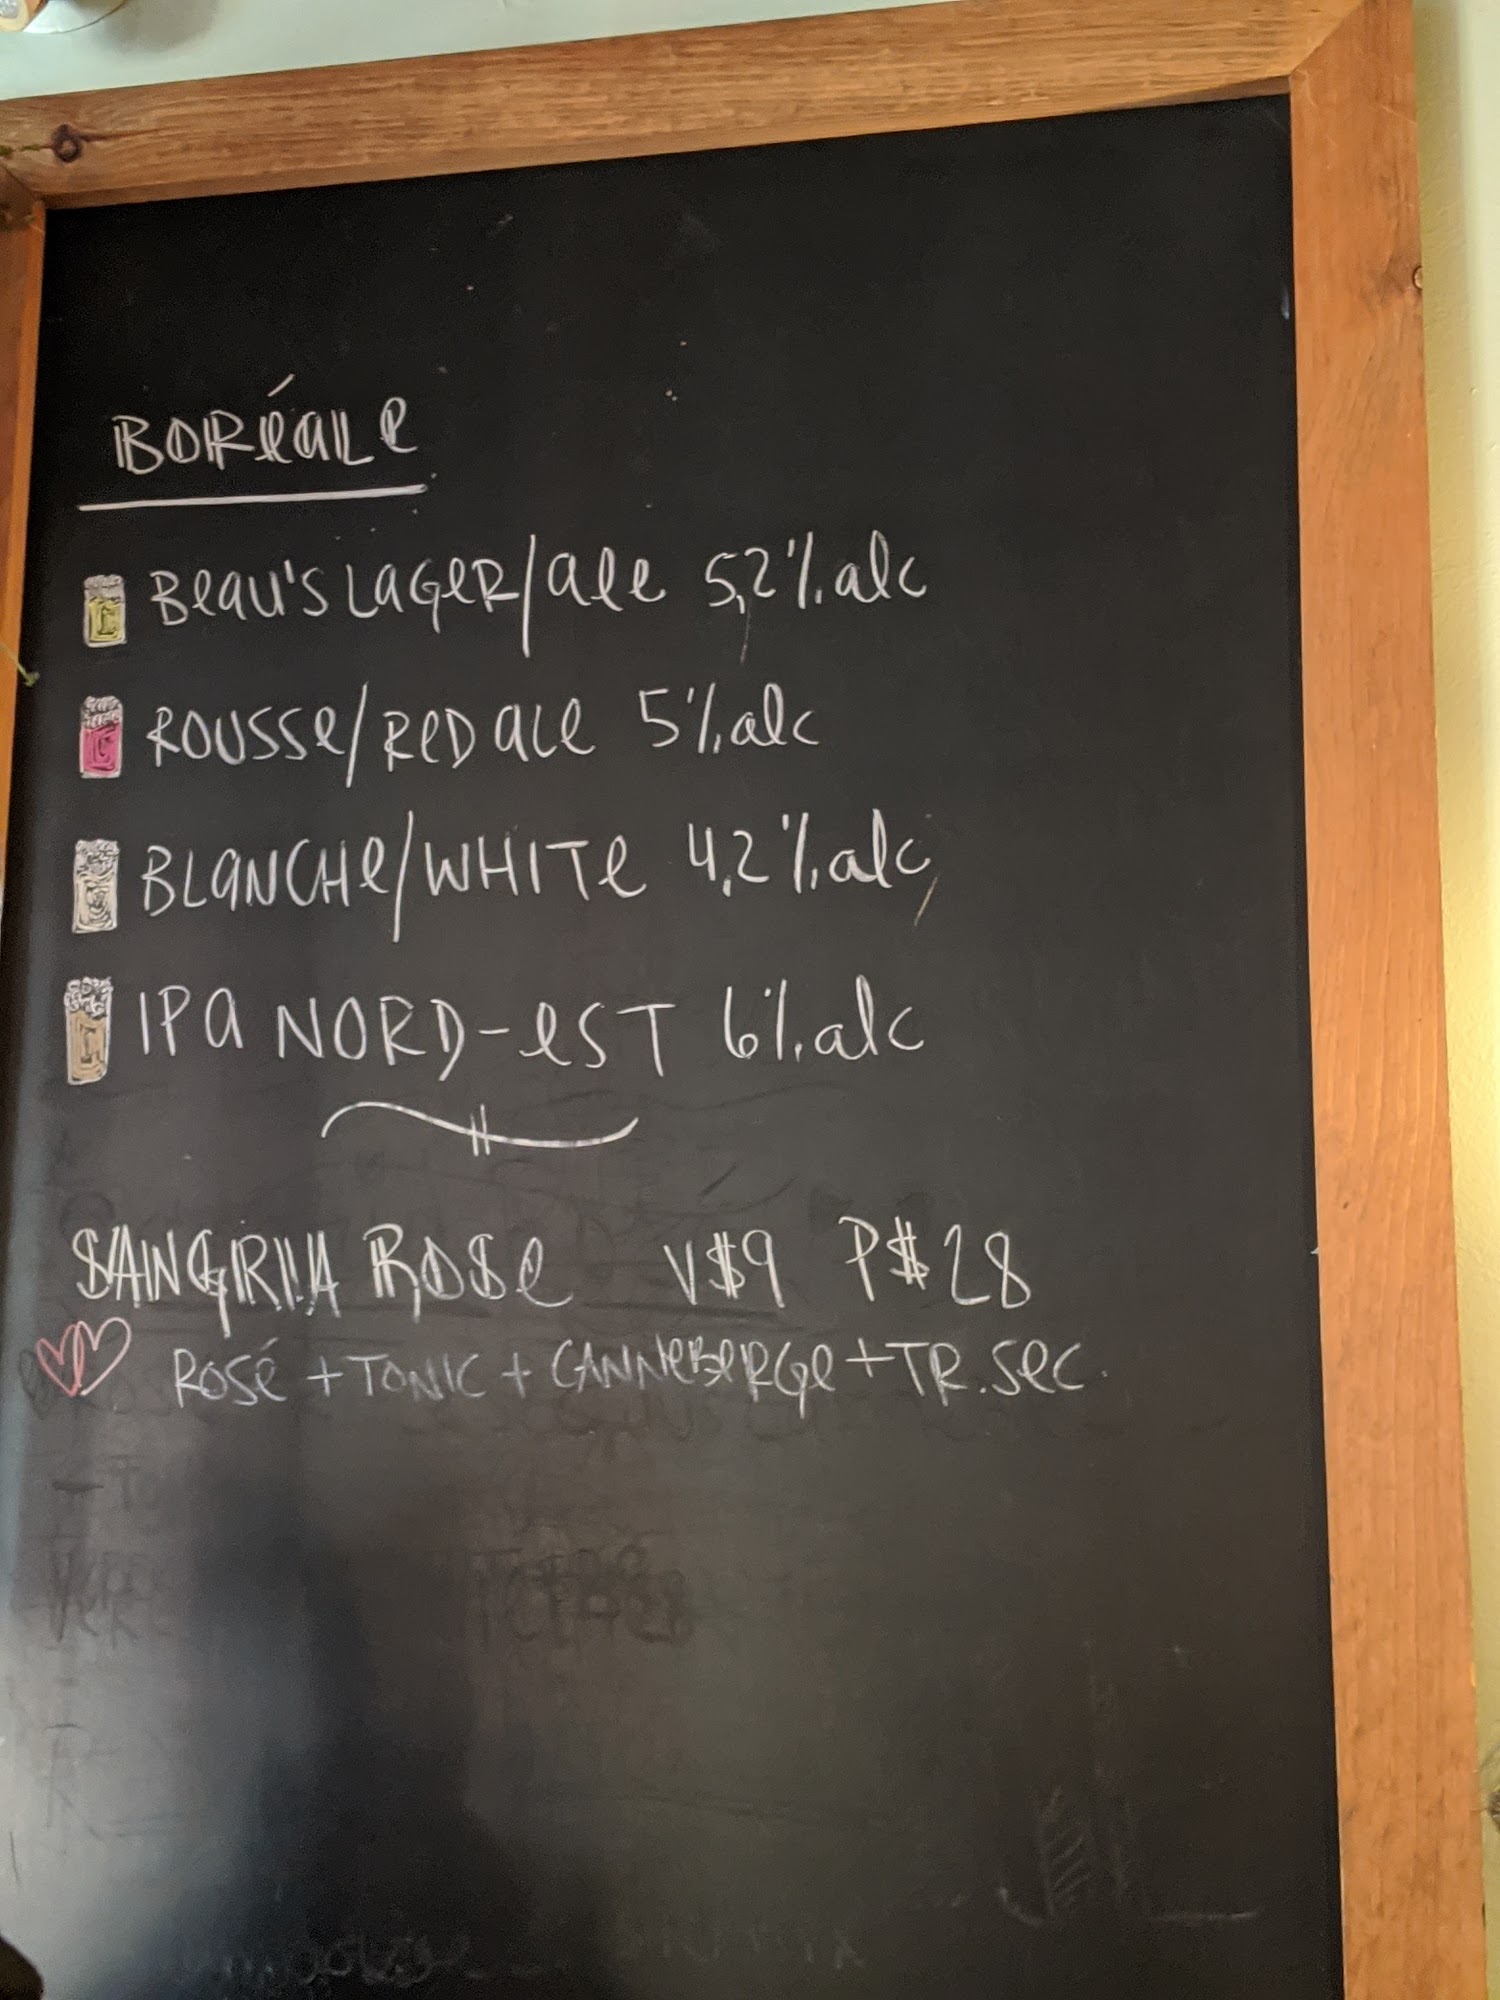 BORÉALE
BEAU'S LAGER/ALE 5,2% alc
ROUSSE/RED ALE 5% alc
BLANCHE/WHITE 4,2% alc
IPA NORD-EST 6% alc
SANGRIA ROSE V$9 P$28
ROSÉ + TONIC + CANNEBERGE + TR. SEC.